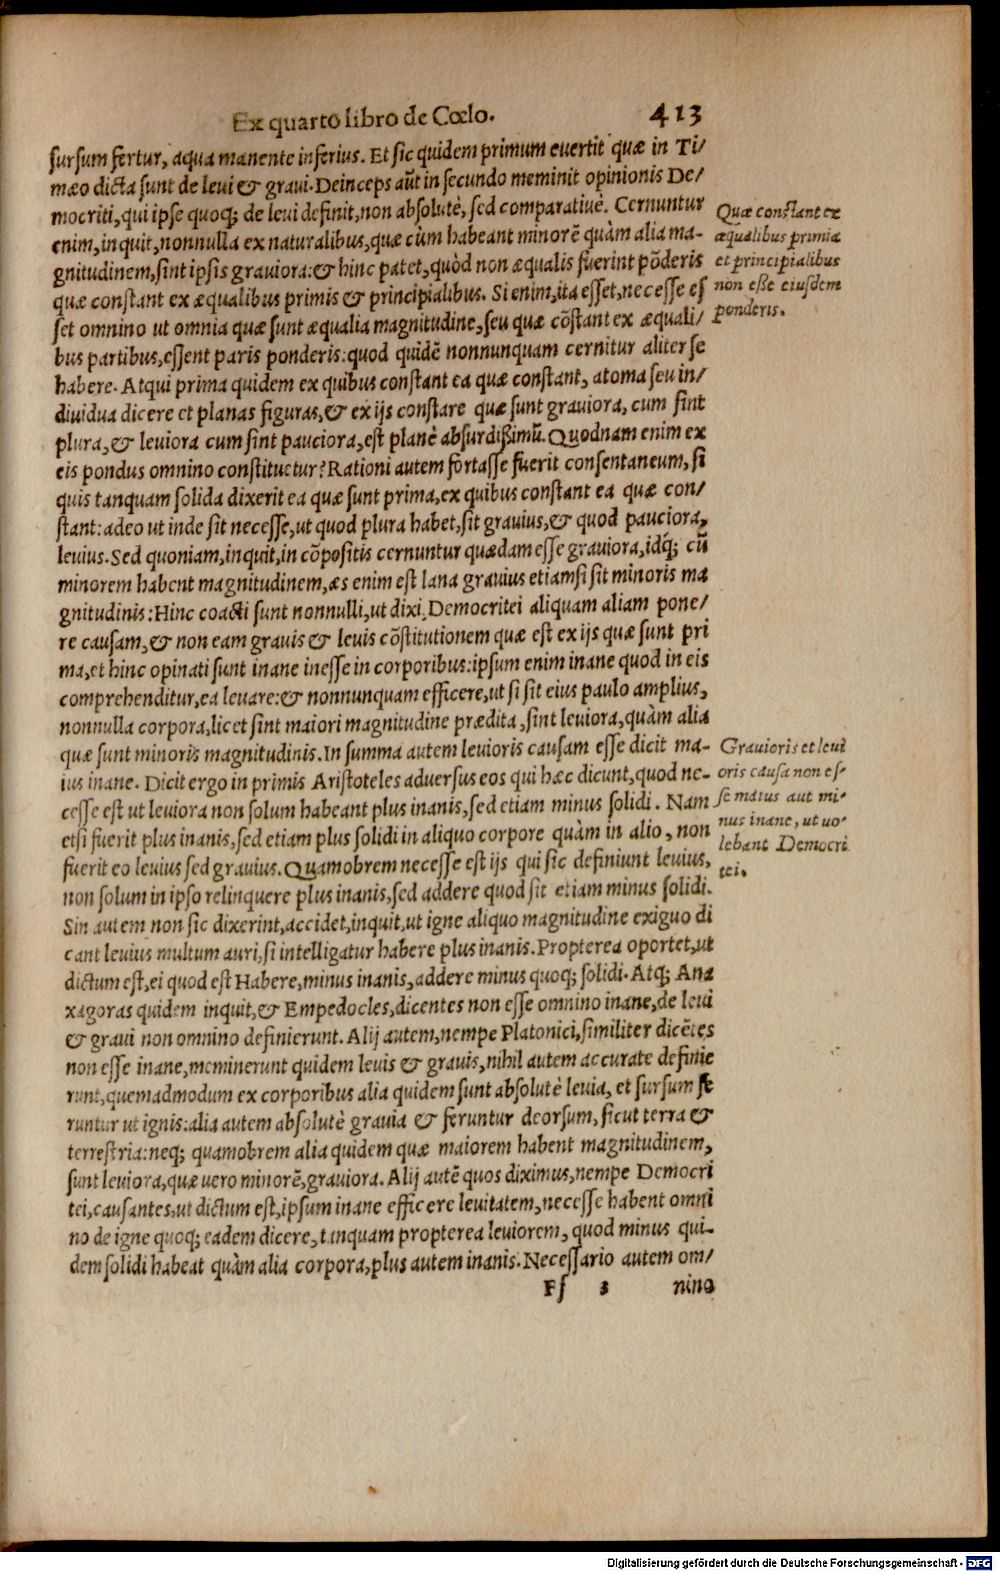 Ex quarto libro de Cœlo. 413
sursum fertur, aqua manente inferius. Et sic quidem primum evertit quæ in Ti/
mæo dicta sunt de levi & gravi. Deinceps aũt in secundo meminit opinionis De/
mocriti, qui ipse quoq; de levi definit, non absolutè, sed comparativè. Cernuntur
enim, inquit, nonnulla ex naturalibus, quæ cùm habeant minorẽ quàm alia ma-
gnitudinem, sint ipsis graviora: & hinc patet, quòd non æqualis fuerint põderis
quæ constant ex æqualibus primis & principialibus. Si enim, ita esset, necesse es
set omnino ut omnia quæ sunt æqualia magnitudine, seu quæ cõstant ex æquali/
bus partibus, essent paris ponderis: quod quidẽ nonnunquam cernitur aliter se
habere. Atqui prima quidem ex quibus constant ea quæ constant, atoma seu in/
dividua dicere et planas figuras, & ex ijs constare quæ sunt graviora, cum sint
plura, & leviora cum sint pauciora, est planè absurdißimũ. Quodnam enim ex
eis pondus omnino constituetur? Rationi autem fortasse fuerit consentaneum, si
quis tanquam solida dixerit ea quæ sunt prima, ex quibus constant ea quæ con/
stant: adeo ut inde sit necesse, ut quod plura habet, sit gravius, & quod pauciora,
levius. Sed quoniam, inquit, in cõpositis cernuntur quædam esse graviora, idq́; cũ
minorem habent magnitudinem, æs enim est lana gravius etiamsi sit minoris ma
gnitudinis: Hinc coacti sunt nonnulli, ut dixi, Democritei aliquam aliam pone/
re causam, & non eam gravis & levis cõstitutionem quæ est ex ijs quæ sunt pri
ma, et hinc opinati sunt inane inesse in corporibus: ipsum enim inane quod in eis
comprehenditur, ea levare: & nonnunquam efficere, ut si sit eius paulo amplius,
nonnulla corpora, licet sint maiori magnitudine prædita, sint leviora, quàm alia
quæ sunt minoris magnitudinis. In summa autem levioris causam esse dicit ma-
ius inane. Dicit ergo in primis Aristoteles adversus eos qui hæc dicunt, quod ne-
cesse est ut leviora non solum habeant plus inanis, sed etiam minus solidi. Nam
etsi fuerit plus inanis, sed etiam plus solidi in aliquo corpore quàm in alio, non
fuerit eo levius sed gravius. Quamobrem necesse est ijs qui sic definiunt levius,
non solum in ipso relinquere plus inanis, sed addere quod sit etiam minus solidi.
Sin autem non sic dixerint, accidet, inquit, ut igne aliquo magnitudine exiguo di
cant levius multum auri, si intelligatur habere plus inanis. Propterea oportet, ut
dictum est, ei quod est Habere, minus inanis, addere minus quoq; solidi. Atq; Ana
xagoras quidem inquit, & Empedocles, dicentes non esse omnino inane, de levi
& gravi non omnino definierunt. Alij autem, nempe Platonici, similiter dicẽtes
non esse inane, meminerunt quidem levis & gravis, nihil autem accurate definie
runt, quemadmodum ex corporibus alia quidem sunt absolutè levia, et sursum fe
runtur ut ignis: alia autem absolutè gravia & feruntur deorsum, sicut terra &
terrestria: neq; quamobrem alia quidem quæ maiorem habent magnitudinem,
sunt leviora, quæ vero minorẽ, graviora. Alij autẽ quos diximus, nempe Democri
tei, causantes, ut dictum est, ipsum inane efficere levitatem, necesse habent omni
no de igne quoq; eadem dicere, tanquam propterea leviorem, quod minus qui-
dem solidi habeat quàm alia corpora, plus autem inanis. Necessario autem om/
Ff 3 nino
Quæ constant ex
æqualibus primis
et principialibus
non eße eiusdem
ponderis.
Gravioris et levi
oris causa non es-
se maius aut mi-
nus inane, ut vo-
lebant Democri
tei.
Digitalisierung gefördert durch die Deutsche Forschungsgemeinschaft - DFG